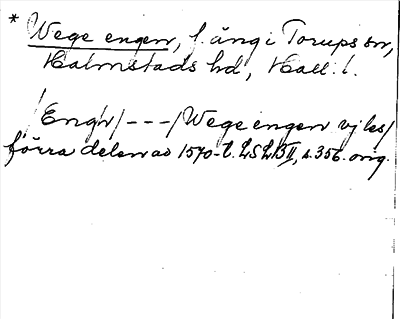 * Wege engen, f. äng i Torups sn,
Halmstads hd, Hall. l.
/Engh/---/Wege engen vj les/
förra delen av 1570-t. LSLB II, s. 356. orig.